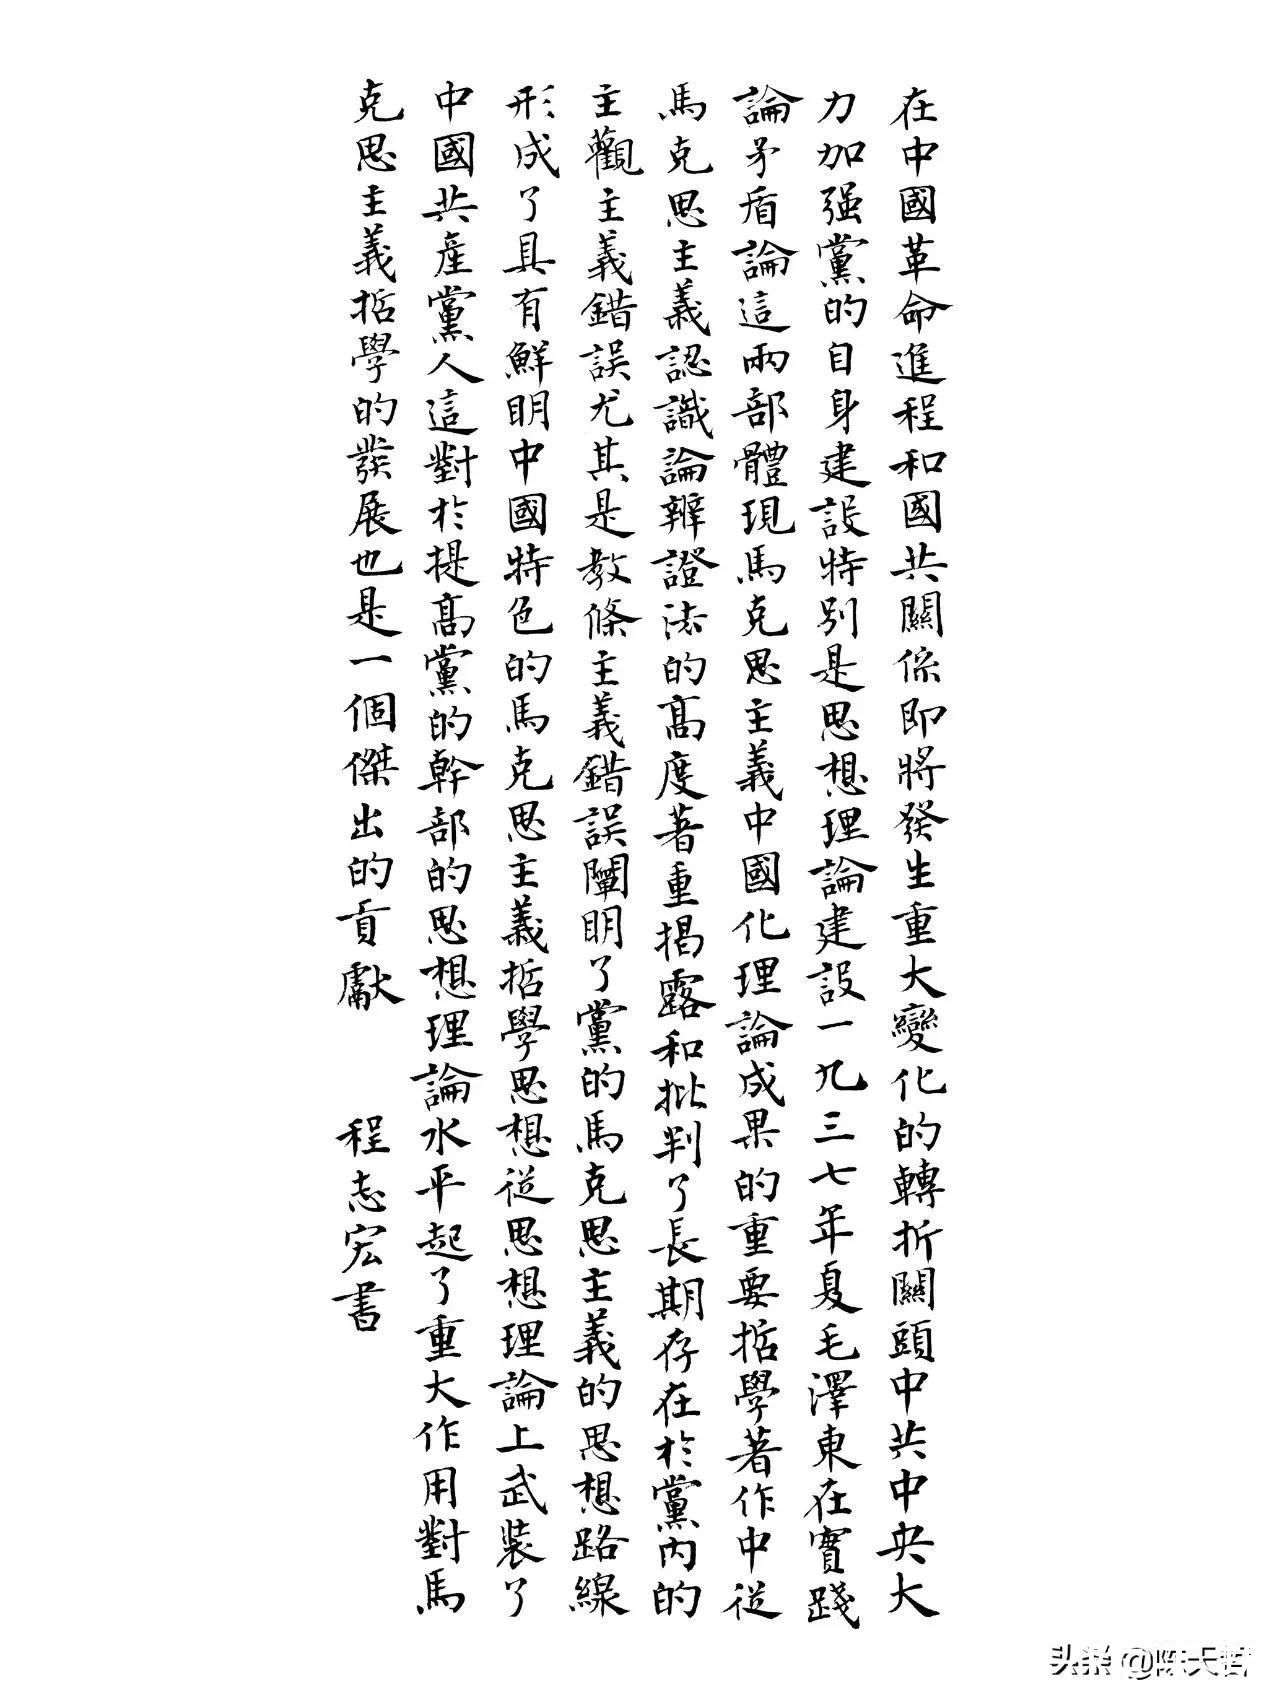 在中國革命進程和國共關係即將發生重大變化的轉折關頭中共中央大
力加强黨的自身建設特别是思想理論建設一九三七年夏毛澤東在實踐
論矛盾論這兩部體現馬克思主義中國化理論成果的重要哲學著作中從
馬克思主義認識論辯證法的高度著重揭露和批判了長期存在於黨内的
主觀主義錯誤尤其是教條主義錯誤闡明了黨的馬克思主義的思想路線
形成了具有鮮明中國特色的馬克思主義哲學思想從思想理論上武裝了
中國共産黨人這對於提高黨的幹部的思想理論水平起了重大作用對馬
克思主義哲學的發展也是一個傑出的貢獻 程志宏書
头条 @陈天哲